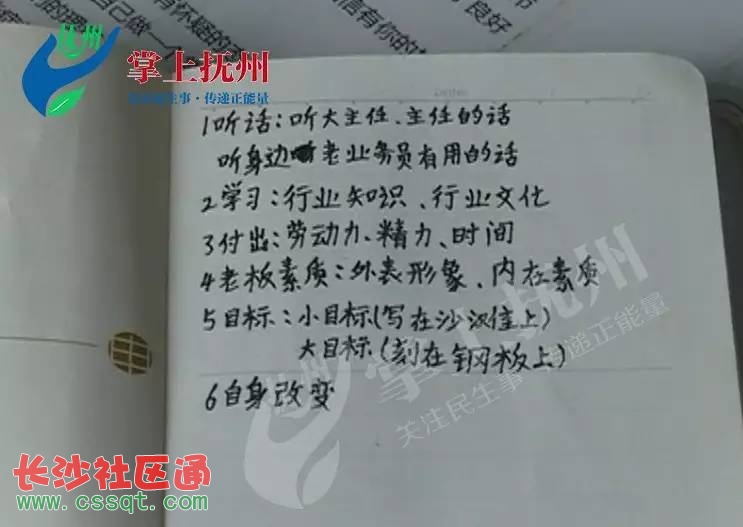 有怀疑的
自己做一个
信有你的
良好
抚州
掌上抚州
关注民生事·传递正能量
1听话：听大主任、主任的话
听身边 老业务员有用的话
2学习：行业知识、行业文化
3付出：劳动力、精力、时间
4老板素质：外表形象、内在素质
5目标：小目标(写在沙汉佳上)
大目标(刻在钢板上)
6自身改变
掌上抚州
关注民生事·传递正能量
长沙社区通
www.cssqt.com